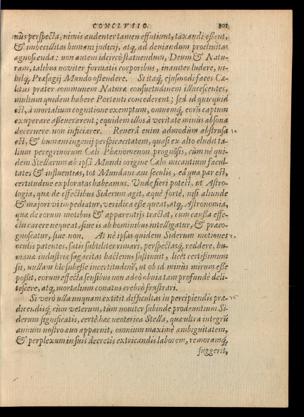 CONCLVSIO. 801
nus perspecta, nimis audenter tamen effutiunt, taxandi essent,
& imbecillitas humani judicij, atq; ad deniandum proclivitas
agnoscenda: non autem ideo
ram, talibus noviter formatis corporibus, inaniter ludere, ne-
bilq; Præsagij Mundo ostendere. Si itaq; ejusmodi faces Cæ-
litus præter communem Naturæ consuetudinem illucescentes,
multum quidem habere Portenti concederent; sed id quicquid
est, à mortalium cognitione exemptum, omnemq; eorū captum
exuperare assererent; equidem illos à veritate minùs absona
decernere non inficiarer. Reverâ enim admodùm abstrusa
est, & humani ingenij perspicientiam, quasi ex alto eludit ta-
lium peregrinorum Cæli Phænomenωn prognosis, cum nè qui-
dem Stellarum ab ipsâ Mundi origine Cælo micantium facul-
tates & influentias, tot Mundanæ aui seculis, eâ qua par est,
certitudine exploratas habeamus. Unde fieri potest, ut Astro-
logia, quæ de effectibus Siderum agit, æquè fortè, nisi aliunde
& majori vi impediatur, veridica esse queat, atq; Astronomia,
quæ de eorum motibus & apparentijs tractat, cum causa effe-
ctu carere nequeat, sive is ab hominibus intelligatur, & præco-
gnoscatur, sive non. At nè ipsa quidem Siderum motiones
oculis patentes, satis subtiliter rimari, perspectasq; reddere, hu-
mana industriæ sagacitas hactenus sustinuit, licet certissimum
sit, nullam his subesse incertitudinē, ut ob id minus mirum esse
possit, eorum effectus sensibus non adeò obvios tam profundè deli-
tescere, atq; mortalium conatus crebrò frustrari.
Si verò ulla unquam extitit difficultas in percipiendis præ-
dicendisq; cum veterum, tùm noviter subinde prodeuntium Si-
derum significatis, certè hæc neoterica Stella, quæ ultra integrū
annum nostro ævo apparuit, omnium maximè ambiguitatem,
& perplexum in suis decretis extricandis laborem, remoramq;
suggerit,